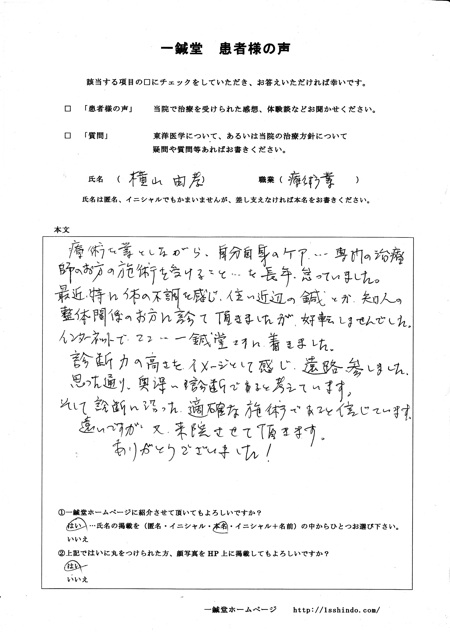 一鍼堂 患者様の声
該当する項目の□にチェックをしていただき、お答えいただければ幸いです。
□ 「患者様の声」 当院で治療を受けられた感想、体験談などお聞かせください。
□ 「質問」 東洋医学について、あるいは当院の治療方針について
疑問や質問等あればお書きください。
氏名 ( 横山 由彦 ) 職業 ( 療術業 )
氏名は匿名、イニシャルでもかまいませんが、差し支えなければ本名をお書きください。
本文
療術を業としながら、自分自身のケア…専門の治療
師のお方の施術を受けること…を長年、怠っていました。
最近、特に体の不調を感じ、住い近辺の鍼とか、知人の
整体関係のお方に診て頂きましたが、好転しませんでした。
インターネットで、ここ…一鍼堂さまに着きました。
診断力の高さをイメージとして感じ、遠路参しました。
思った通り、奥深い診断であると考えています。
そして診断に沿った適確な施術であること信じています。
遠いですが、又、来院させて頂きます。
ありがとうございました!
①一鍼堂ホームページに紹介させて頂いてもよろしいですか?
はい…氏名の掲載を(匿名・イニシャル・本名・イニシャル+名前)の中からひとつお選び下さい。
いいえ
②上記ではいに丸をつけられた方、顔写真をHP上に掲載してもよろしいですか?
はい
いいえ
一鍼堂ホームページ http://1sshindo.com/